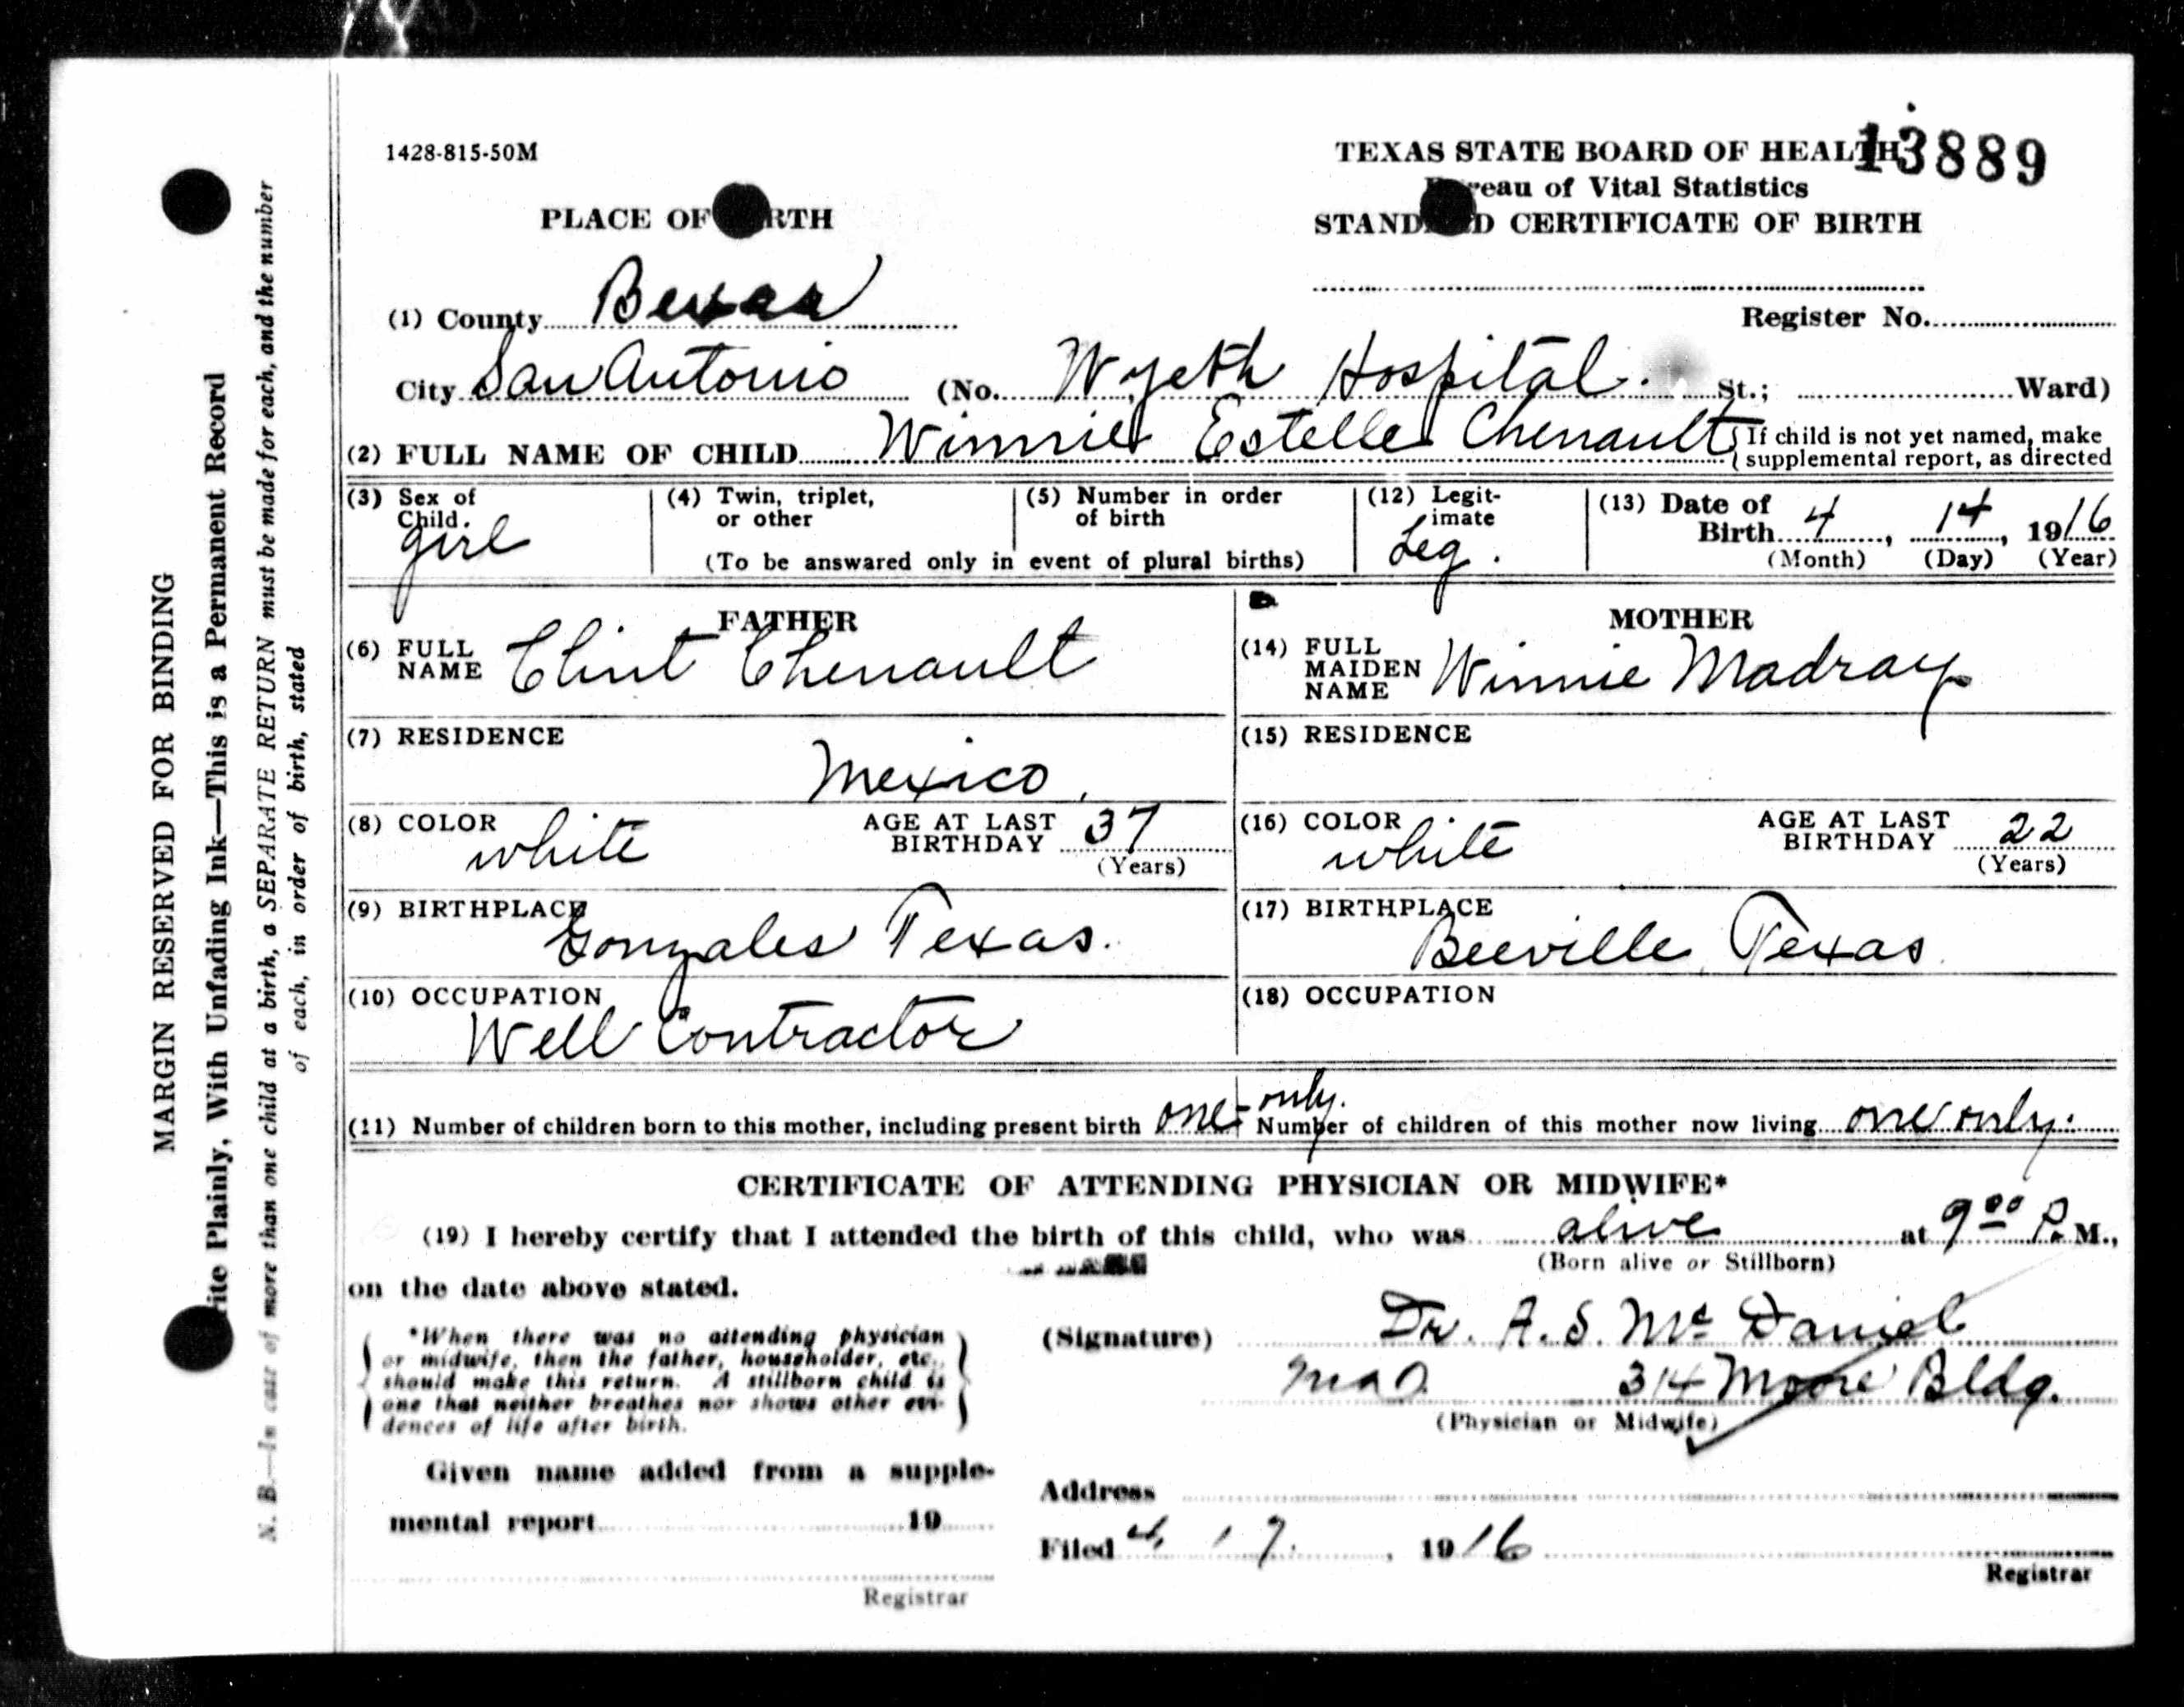 1428-815-50M
TEXAS STATE BOARD OF HEALTH 13889
Bureau of Vital Statistics
PLACE OF BIRTH
STANDARD CERTIFICATE OF BIRTH
(1) County Bexar
Register No.
City San Antonio (No. Wyeth Hospital. St.; Ward)
(2) FULL NAME OF CHILD Winnie Estelle Chenault { If child is not yet named, make supplemental report, as directed
(3) Sex of Child. girl
(4) Twin, triplet, or other
(5) Number in order of birth
(To be answared only in event of plural births)
(12) Legitimate Leg.
(13) Date of Birth 4, 14, 1916
(Month) (Day) (Year)
FATHER
(6) FULL NAME Clint Chenault
(7) RESIDENCE
Mexico
(8) COLOR white AGE AT LAST BIRTHDAY 37
(Years)
(9) BIRTHPLACE
Gonzales Texas.
(10) OCCUPATION
Well Contractor
MOTHER
(14) FULL MAIDEN NAME Winnie Madray
(15) RESIDENCE
(16) COLOR white AGE AT LAST BIRTHDAY 22
(Years)
(17) BIRTHPLACE
Beeville, Texas
(18) OCCUPATION
(11) Number of children born to this mother, including present birth one-only. Number of children of this mother now living one only.
CERTIFICATE OF ATTENDING PHYSICIAN OR MIDWIFE*
(19) I hereby certify that I attended the birth of this child, who was alive at 9 00 P. M.,
(Born alive or Stillborn)
on the date above stated.
*When there was no attending physician
or midwife, then the father, householder, etc.,
should make this return. A stillborn child is
one that neither breathes nor shows other evi-
dences of life after birth.
(Signature) Dr. A. S. Mc Daniel
314 Moore Bldg.
(Physician or Midwife)
Given name added from a supple-
mental report 19
Registrar
Address
Filed 4, 17, 1916
Registrar
MARGIN RESERVED FOR BINDING
rite Plainly, With Unfading Ink—This is a Permanent Record
N. B.—In case of more than one child at a birth, a SEPARATE RETURN must be made for each, and the number
of each, in order of birth, stated